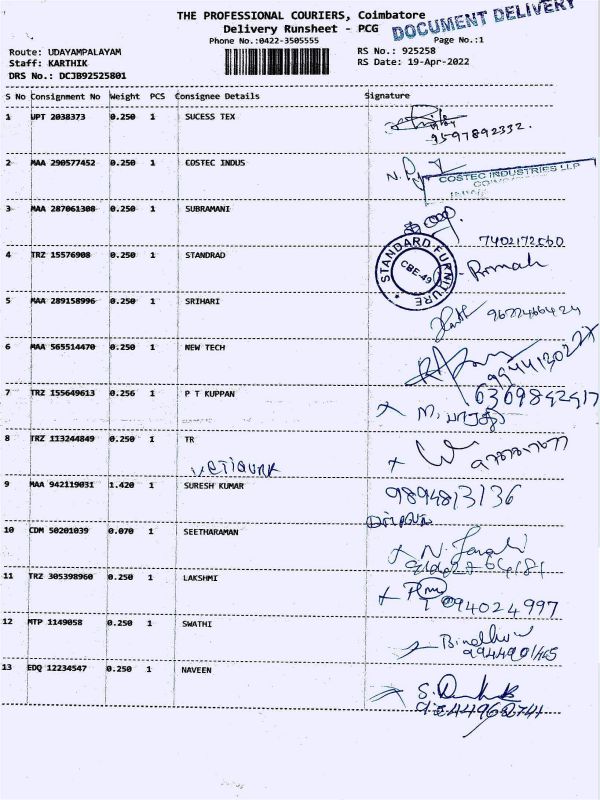 THE PROFESSIONAL COURIERS, Coimbatore
DOCUMENT DELIVERY
Delivery Runsheet - PCG
Phone No.:0422-3505555
Page No.:1
Route: UDAYAMPALAYAM
RS No.: 925258
Staff: KARTHIK
RS Date: 19-Apr-2022
DRS No.: DCJB92525801
S No Consignment No Weight PCS Consignee Details Signature
1 UPT 2038373 0.250 1 SUCESS TEX
9597892332.
2 MAA 290577452 0.250 1 COSTEC INDUS
COSTEC INDUSTRIES LLP
3 MAA 287061308 0.250 1 SUBRAMANI
4 TRZ 15576908 0.250 1 STANDRAD
STANDARD FURNITURE
CBE-49
5 MAA 289158996 0.250 1 SRIHARI
6 MAA 565514470 0.250 1 NEW TECH
7 TRZ 155649613 0.256 1 P T KUPPAN
6369842917
8 TRZ 113244849 0.250 1 TR
9 MAA 942119031 1.420 1 SURESH KUMAR
9894813136
10 CDM 50201039 0.070 1 SEETHARAMAN
11 TRZ 305398960 0.250 1 LAKSHMI
12 MTP 1149058 0.250 1 SWATHI
13 EDQ 12234547 0.250 1 NAVEEN